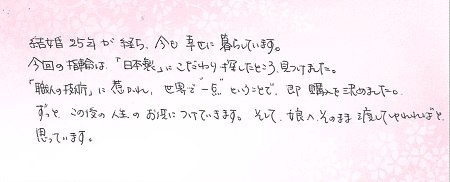 結婚25年が経ち、今も幸せに暮らしています。
今回の指輪は、「日本製」にこだわり探したところ、見つけました。
「職人の技術」に惹かれ、世界で"一点"ということで、即購入を決めました。
ずっと、この後の人生のお供につけていきます。そして、娘へそのまま渡してやれればと
思っています。